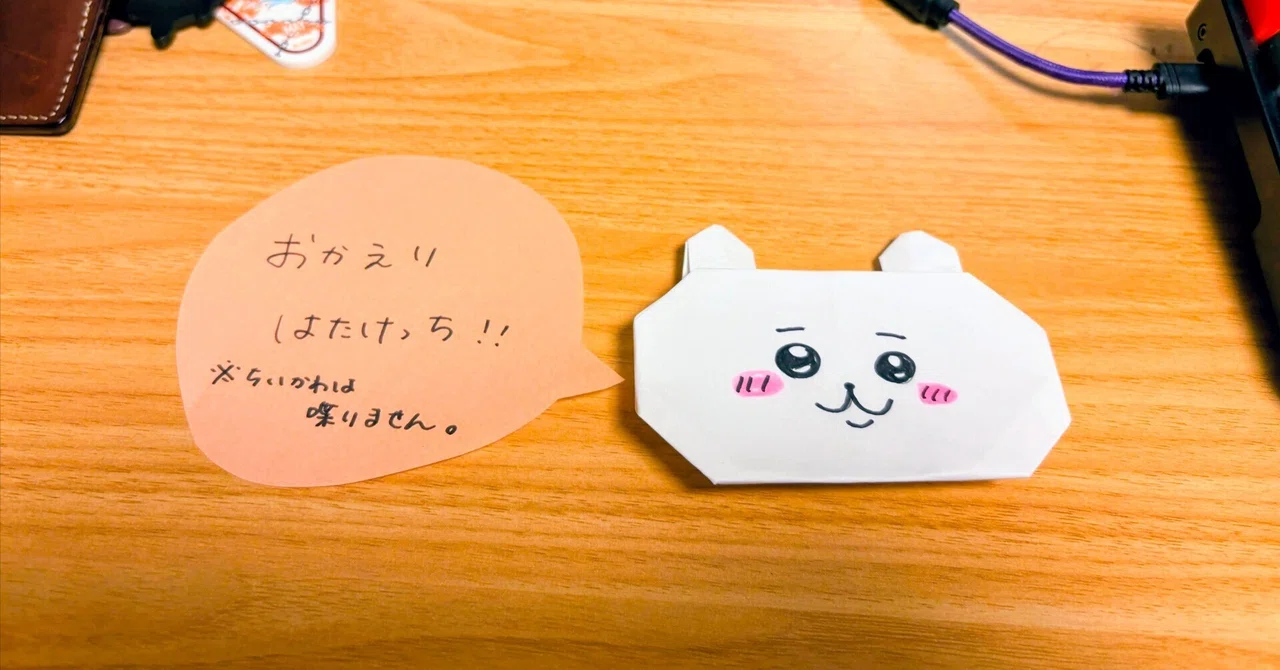 おかえり
はたけっち!!
※ちいかわは
喋りません。